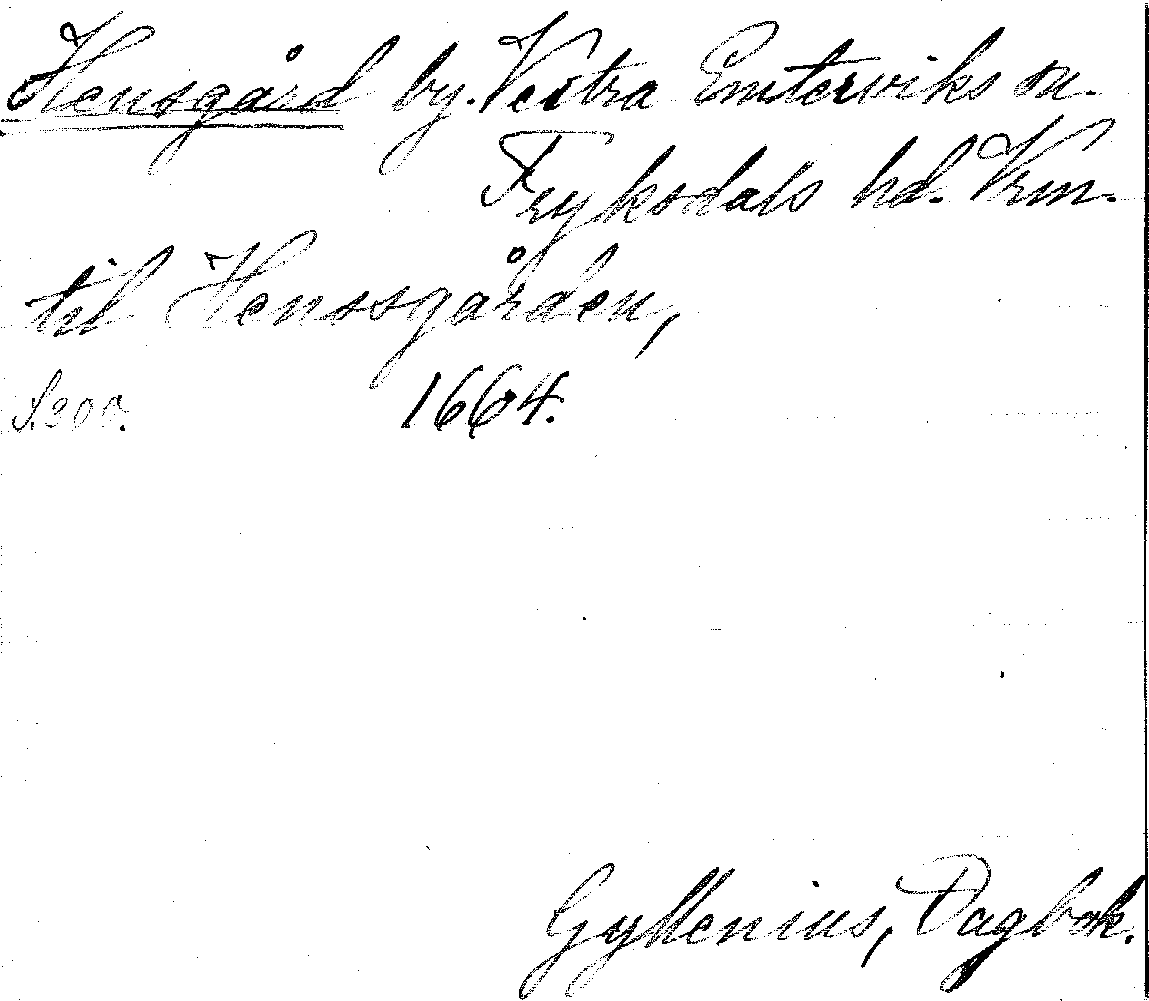 Hensgård by. Vestra Emterviks sn.
Fryksdals hd. Vrm.
til Henssgården,
S.300. 1664.
Gyllenius, Dagbok.